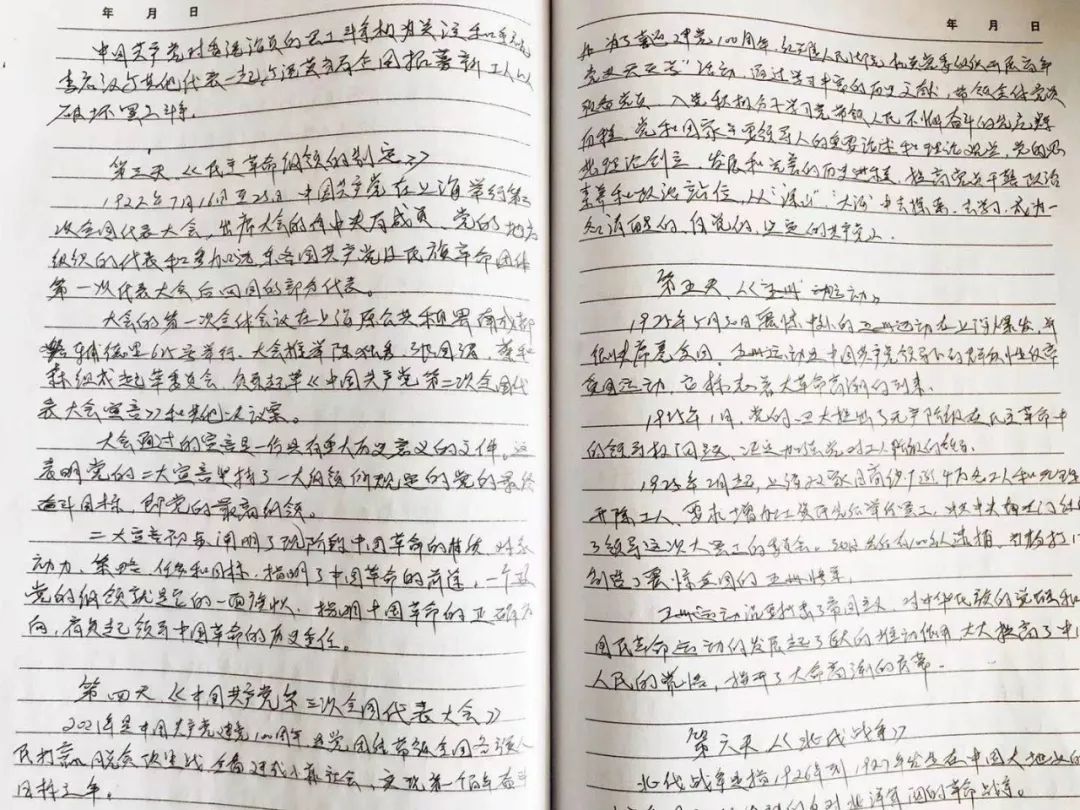 年 月 日
中国共产党对安源路矿的罢工斗争极为关注
李启汉与其他代表一起
破坏罢工斗争。
第三天《民主革命纲领的制定》
1922年7月16日至23日,中国共产党在上海举行第二
次全国代表大会,出席大会的有中央局成员、党的地方
组织的代表和参加远东各国共产党及民族革命团体
第一次代表大会后回国的部分代表。
大会的第一次全体会议在上海原公共租界南成都
路辅德里625号举行。大会推举陈独秀、张国焘、蔡和
森组成起草委员会,负责起草《中国共产党第二次全国代
表大会宣言》和其他决议案。
大会通过的宣言是一份具有重大历史意义的文件。这
表明党的二大宣言坚持了一大纲领所规定的党的最终
奋斗目标,即党的最高纲领。
二大宣言初步阐明了现阶段中国革命的性质、对象、
动力、策略、任务和目标,指明了中国革命的前途,一个政
党的纲领就是它的一面旗帜,指明中国革命的正确方
向,肩负起领导中国革命的历史重任。
第四天《中国共产党第三次全国代表大会》
2021年是中国共产党建党100周年,是党团结带领全国各族人
民打赢脱贫攻坚战全面建成小康社会,实现第一个百年奋斗
目标之年。
年 月 日
为了喜迎建党100周年
党史天天学"活动,通过学习丰富的历史文献,带领全体党员
预备党员、入党积极分子学习党带领人民不懈奋斗的光辉
历程、党和国家主要领导人的重要论述和理论观点、党的思
想理论创立、发展和完善的历史进程,提高党员干部政治
素养和政治站位,从
知识的、自觉的、坚定的共产党人。
第五天《五卅运动》
1925年5月30日震惊中外的五卅运动在上海爆发,并
很快席卷全国。五卅运动是中国共产党领导下的群众性反帝
爱国运动,它标志着大革命高潮的到来。
1925年1月,党的四大提出了无产阶级在民主革命中
的领导权问题,决定加强党对工人阶级的领导。
1925年2月起,上海22家日商纱厂近4万名工人
开除工人、要求增加工资
了领导这次大罢工的委员会。
制造了震惊全国的五卅惨案。
五卅运动沉重打击了帝国主义,对中华民族的觉醒和
国民革命运动的发展起了巨大的推动作用,大大提高了中国
人民的觉悟,揭开了大革命高潮的序幕。
第六天《北伐战争》
北伐战争是指1926年到1927年发生在中国大地上的
对北洋军阀的革命战争。